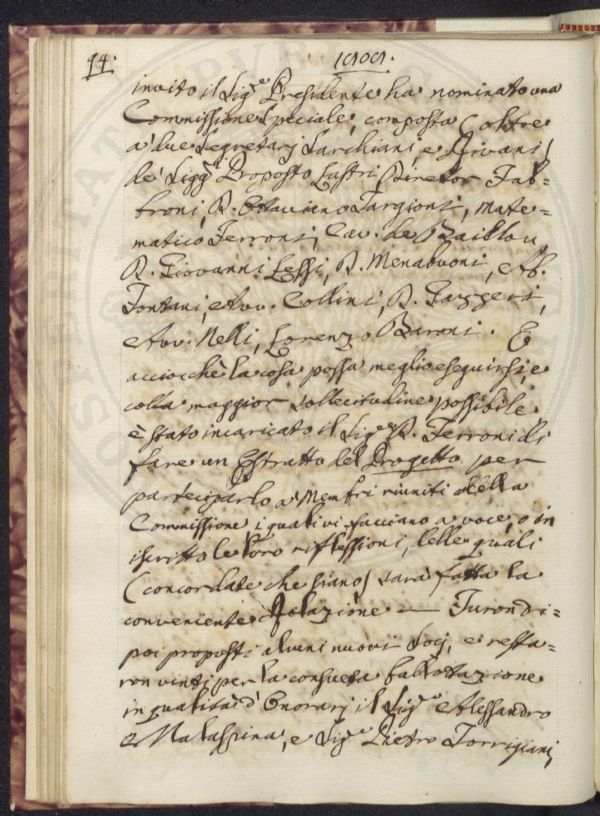 94.
invito il Sig.e Presidente ha nominato una
Commissione Speciale, composta (oltre
a' due Segretarj Sarchiani, e Rivani)
de' Sigg.i Proposto Lastri, Diretor Fab=
broni, D. Ottaviano Targioni, Mate=
matico Ferroni, Cav. de Baillou,
D. Giovanni Lessi, D. Menabuoni, Ab.
Fontani, Avv. Collini, D. Gazzeri,
Avv. Nelli, Lorenzo Baroni. E
acciocchè la cosa possa meglio eseguirsi, e
colla maggior sollecitudine possibile
è stato incaricato il Sig.e P. Ferroni di
fare un Estratto del Progetto per
parteciparlo a' Membri riuniti della
Commissione, i quali vi facciano a voce, o in
iscritto le loro riflessioni, delle quali
(concordate che siano) sarà fatta la
conveniente Relazione — Furon di=
poi proposti alcuni nuovi Socj, e resta=
ron vinti per la consueta ballottazione
in qualità d'Onorarj il Sig.e Alessandro
Malaspina, e Sig.e Pietro Torrigiani,